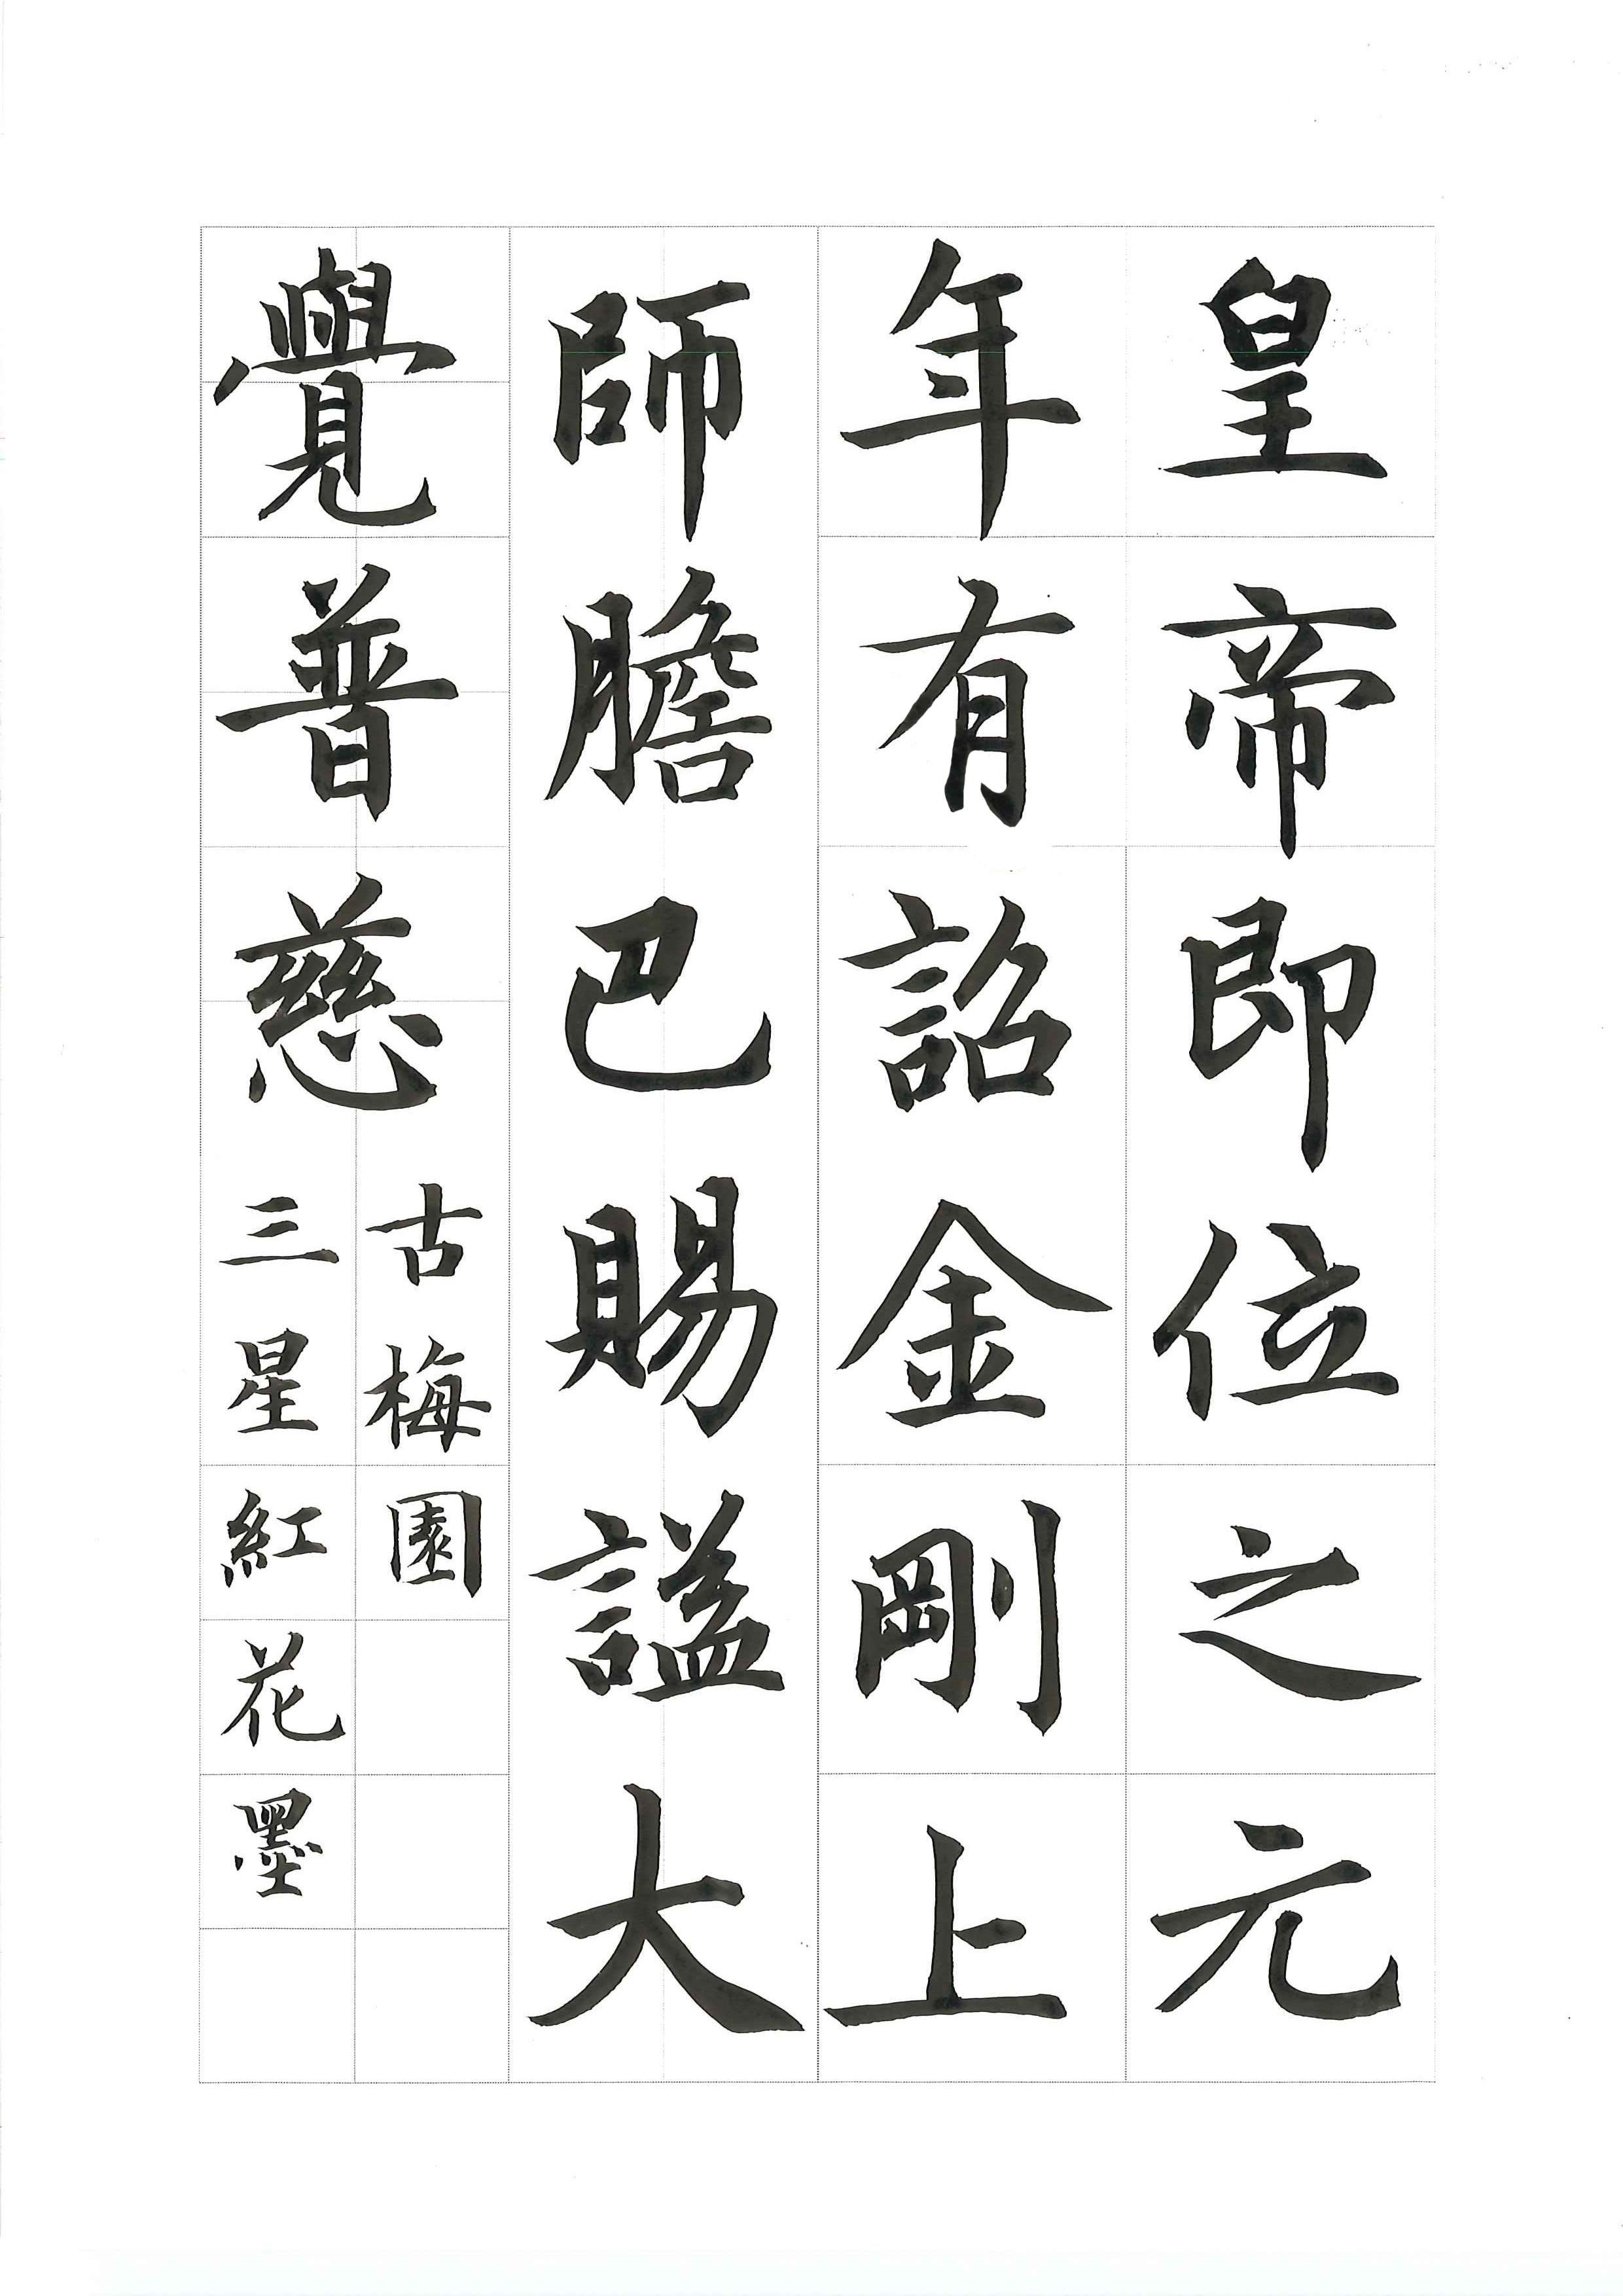 皇帝即位之元
年有詔金剛上
師膽巴賜謚大
覺普慈
古梅園
三星紅花墨